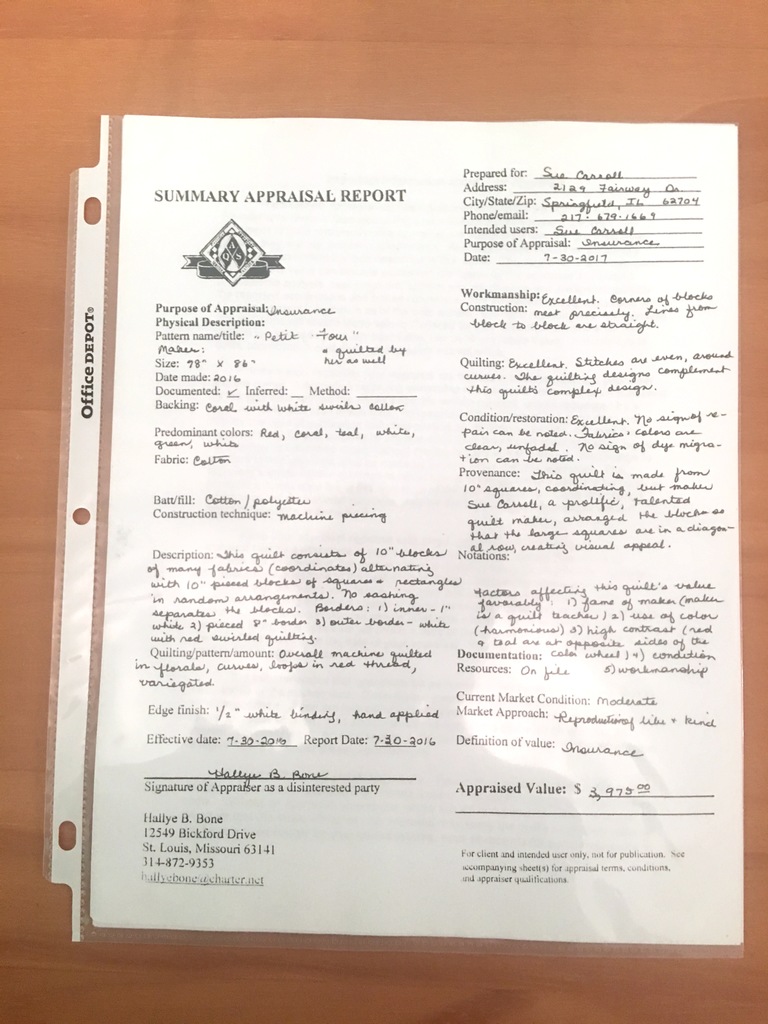 Office DEPOT®
SUMMARY APPRAISAL REPORT
AQS
Purpose of Appraisal: Insurance
Physical Description:
Pattern name/title: "Petit Four"
Maker: * quilted by
her as well
Size: 78" x 86"
Date made: 2016
Documented: ✓ Inferred: __ Method: ________
Backing: Coral with white swirls cotton
Predominant colors: Red, coral, teal, white,
green, white
Fabric: Cotton
Batt/fill: Cotton/polyester
Construction technique: machine piecing
Description: This quilt consists of 10" blocks
of many fabrics (coordinates) alternating
with 10" pieced blocks of squares + rectangles
in random arrangements. No sashing
separates the blocks. Borders: 1) inner - 1"
white 2) pieced 8" border 3) outer border - white
with red swirled quilting.
Quilting/pattern/amount: Overall machine quilted
in florals, curves, loops in red thread,
variegated
Edge finish: 1/2" white binding, hand applied
Effective date: 7-30-2016 Report Date: 7-30-2016
Hallye B. Bone
Signature of Appraiser as a disinterested party
Hallye B. Bone
12549 Bickford Drive
St. Louis, Missouri 63141
314-872-9353
hallyebone@charter.net
Prepared for: Sue Carroll
Address: 2129 Fairway Dr.
City/State/Zip: Springfield, IL 62704
Phone/email: 217-679-1669
Intended users: Sue Carroll
Purpose of Appraisal: Insurance
Date: 7-30-2017
Workmanship: Excellent. Corners of blocks
Construction: meet precisely. Lines from
block to block are straight.
Quilting: Excellent. Stitches are even, around
curves. The quilting designs complement
this quilt's complex design.
Condition/restoration: Excellent. No sign of re-
pair can be noted. Fabrics' colors are
clear, unfaded. No sign of dye migra-
tion can be noted.
Provenance: This quilt is made from
10" squares, coordinating, but maker
Sue Carroll, a prolific, talented
quilt maker, arranged the blocks so
that the large squares are in a diagon-
al row, creating visual appeal.
Notations:
Factors affecting this quilt's value
favorably: 1) fame of maker (maker
is a quilt teacher) 2) use of color
(harmonious) 3) high contrast (red
& teal are at opposite sides of the
Documentation: color wheel) 4) condition
Resources: On file 5) workmanship
Current Market Condition: Moderate
Market Approach: Reproduction of like + kind
Definition of value: Insurance
Appraised Value: $ 3,975.00
For client and intended user only, not for publication. See
accompanying sheet(s) for appraisal terms, conditions,
and appraiser qualifications.